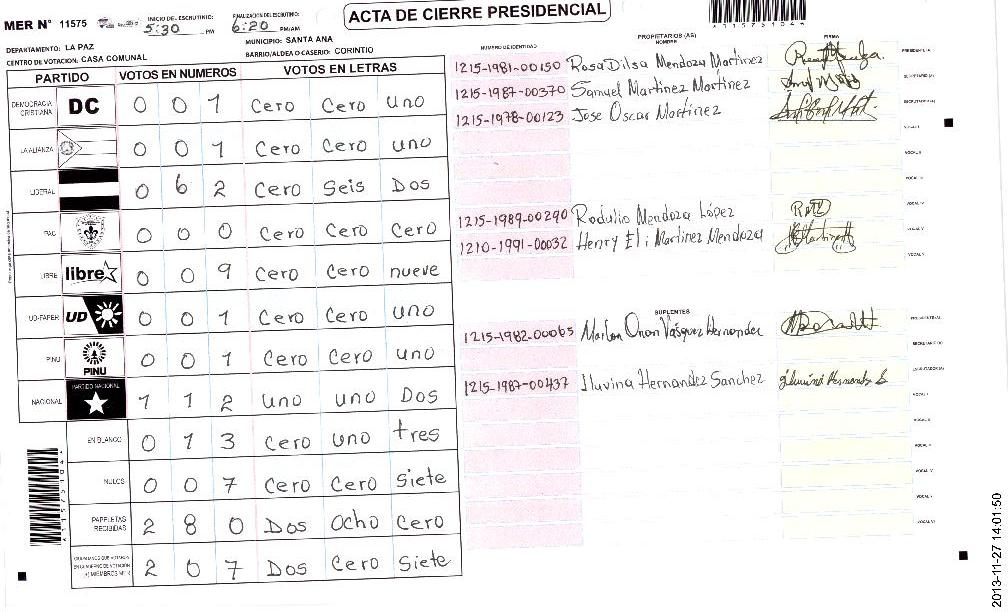 MER Nº 11575
INICIO DEL ESCRUTINIO: 5:30 PM
FINALIZACION DEL ESCRUTINIO: 6:20 PM/AM
ACTA DE CIERRE PRESIDENCIAL
A11575104A
DEPARTAMENTO: LA PAZ
MUNICIPIO: SANTA ANA
CENTRO DE VOTACION: CASA COMUNAL
BARRIO/ALDEA O CASERIO: CORINTIO
PARTIDO VOTOS EN NUMEROS VOTOS EN LETRAS
DEMOCRACIA CRISTIANA DC 0 0 1 Cero Cero uno
LA ALIANZA 0 0 1 Cero Cero uno
LIBERAL 0 6 2 Cero Seis Dos
PAC 0 0 0 Cero Cero Cero
LIBRE libre 0 0 9 Cero Cero nueve
UD-FAPER UD 0 0 1 Cero Cero uno
PINU PINU 0 0 1 Cero Cero uno
NACIONAL PARTIDO NACIONAL 1 1 2 uno uno Dos
EN BLANCO 0 1 3 Cero uno tres
NULOS 0 0 7 Cero Cero Siete
PAPELETAS RECIBIDAS 2 8 0 Dos Ocho Cero
CIUDADANOS QUE VOTARON EN CUADERNO DE VOTACION 2 0 7 Dos Cero Siete
NUMERO DE IDENTIDAD PROPIETARIOS (AS) NOMBRE FIRMA
1215-1981-00150 Rosa Dilsa Mendoza Martinez PRESIDENTE/A
1215-1987-00370 Samuel Martinez Martinez SECRETARIO(A)
1215-1978-00123 Jose Oscar Martinez ESCRUTADOR(A)
VOCAL I
VOCAL II
VOCAL III
1215-1989-00290 Rodulio Mendoza López VOCAL IV
1210-1991-00032 Henry Eli Martinez Mendoza VOCAL V
VOCAL VI
SUPLENTES
1215-1982-00065 Marlon Onan Vasquez Hernandez PRESIDENTE(A)
SECRETARIO(A)
1215-1987-00437 Iluvina Hernandez Sanchez ESCRUTADOR(A)
VOCAL I
VOCAL II
VOCAL III
VOCAL IV
VOCAL V
VOCAL VI
A11575104A
2013-11-27 14:01:50